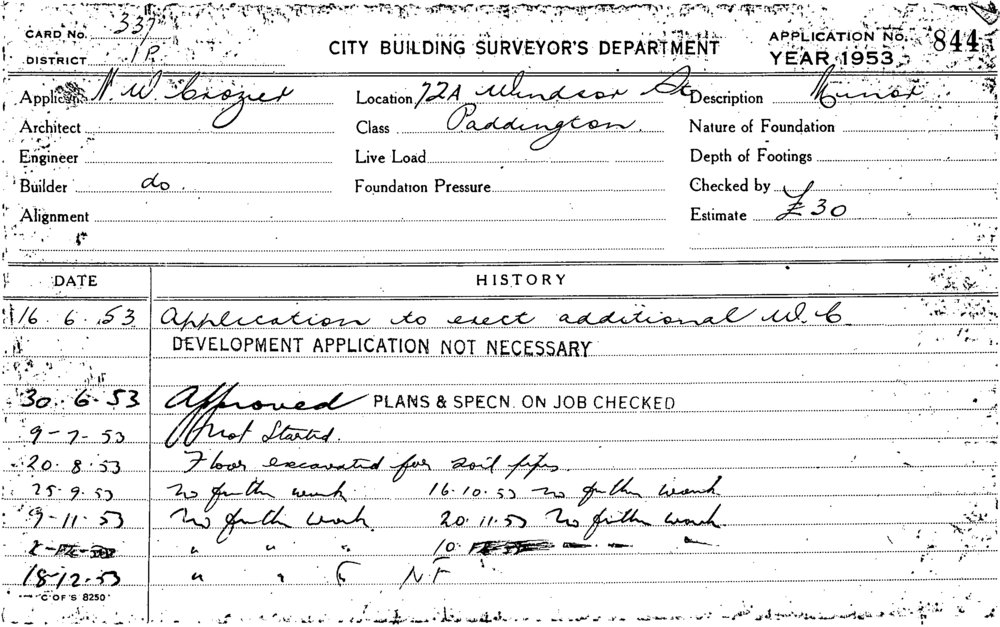 CARD No. 337
DISTRICT 1P.
CITY BUILDING SURVEYOR'S DEPARTMENT
APPLICATION No. 844
YEAR 1953
Applicant N. W. Crozier Location 72A Windsor St Description Minor.
Architect Class Paddington. Nature of Foundation
Engineer Live Load Depth of Footings
Builder do. Foundation Pressure Checked by
Alignment Estimate £30
DATE HISTORY
16. 6. 53 Application to erect additional W.C.
DEVELOPMENT APPLICATION NOT NECESSARY
30. 6. 53 Approved PLANS & SPECN. ON JOB CHECKED
9-7-53 Not Started.
20. 8. 53 Floor excavated for soil pipes.
25. 9. 53 No further work 16.10.53 No further work
9-11-53 No further work. 20.11.53 No further work
" " " 10
18-12-53 " " F NF
C OF S 8250